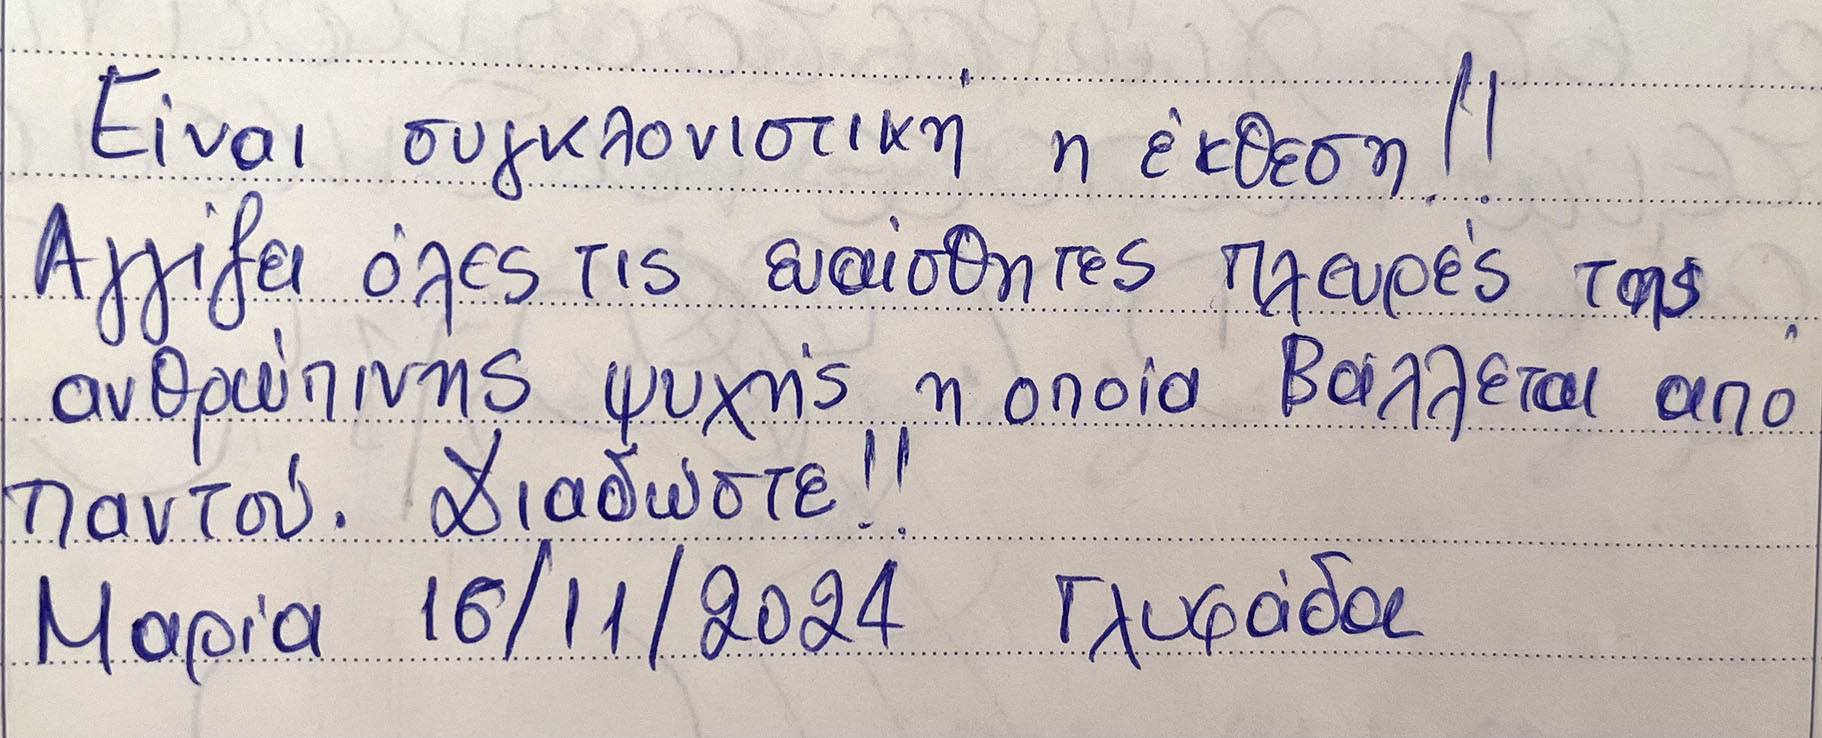 Είναι συγκλονιστική η έκθεση!!
Αγγίζει όλες τις ευαίσθητες πλευρές της
ανθρώπινης ψυχής η οποία βάλλεται από
παντού. Διαδώστε!!
Μαρία 16/11/2024 Γλυφάδα